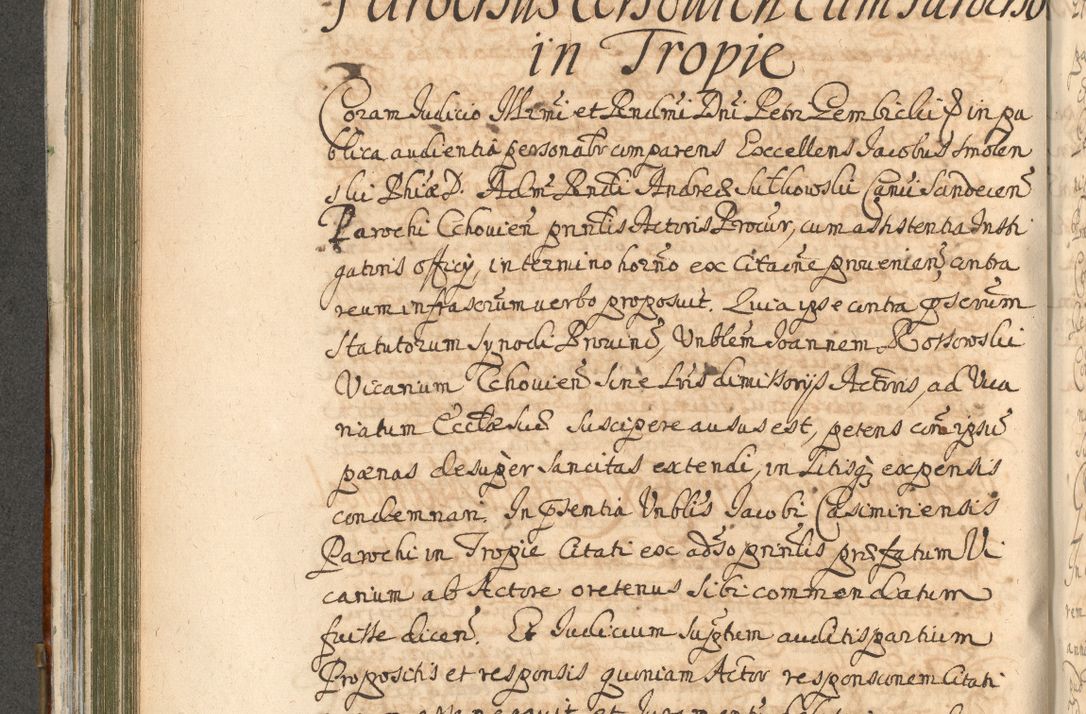 Parochus Cchovien cum Parocho
in Tropie
Coram Iudicio Illrmi et Rndmi Dni Petri Gembicki in pu
blica audientia personalr comparens Excellens Iacobus Smolen
ski Phiæ D. Adm Rndi Andreæ Sutkowski Canci Sandecen
Parochi Cchovien prinlis Actoris Procur, cum assistentia Insti
gatoris officij, in termino horno ex Citaone provenian, contra
reum infrascrum verbo proposuit. Quia ipse contra pscrum
Statutorum Synodi Provin, Vnblem Ioannem Rossowski
Vicarium Tchovien sine Lris dimissorijs Actoris, ad Vica
riatum Ecclæ suæ suscipere ausus est, petens con ipsu
pænas desuper sancitas extendi, in Litisq expensis
condemnari. In psentia Vnblis Iacobi Casiminensis
Parochi in Tropie Citati ex adso prinlis præfatum Vi
carium ab Actore oretenus sibi commendatum
fuisse dicen. Et Iudicium suptum auditis partium
Propositis et responsis quoniam Actor responsionem Citati